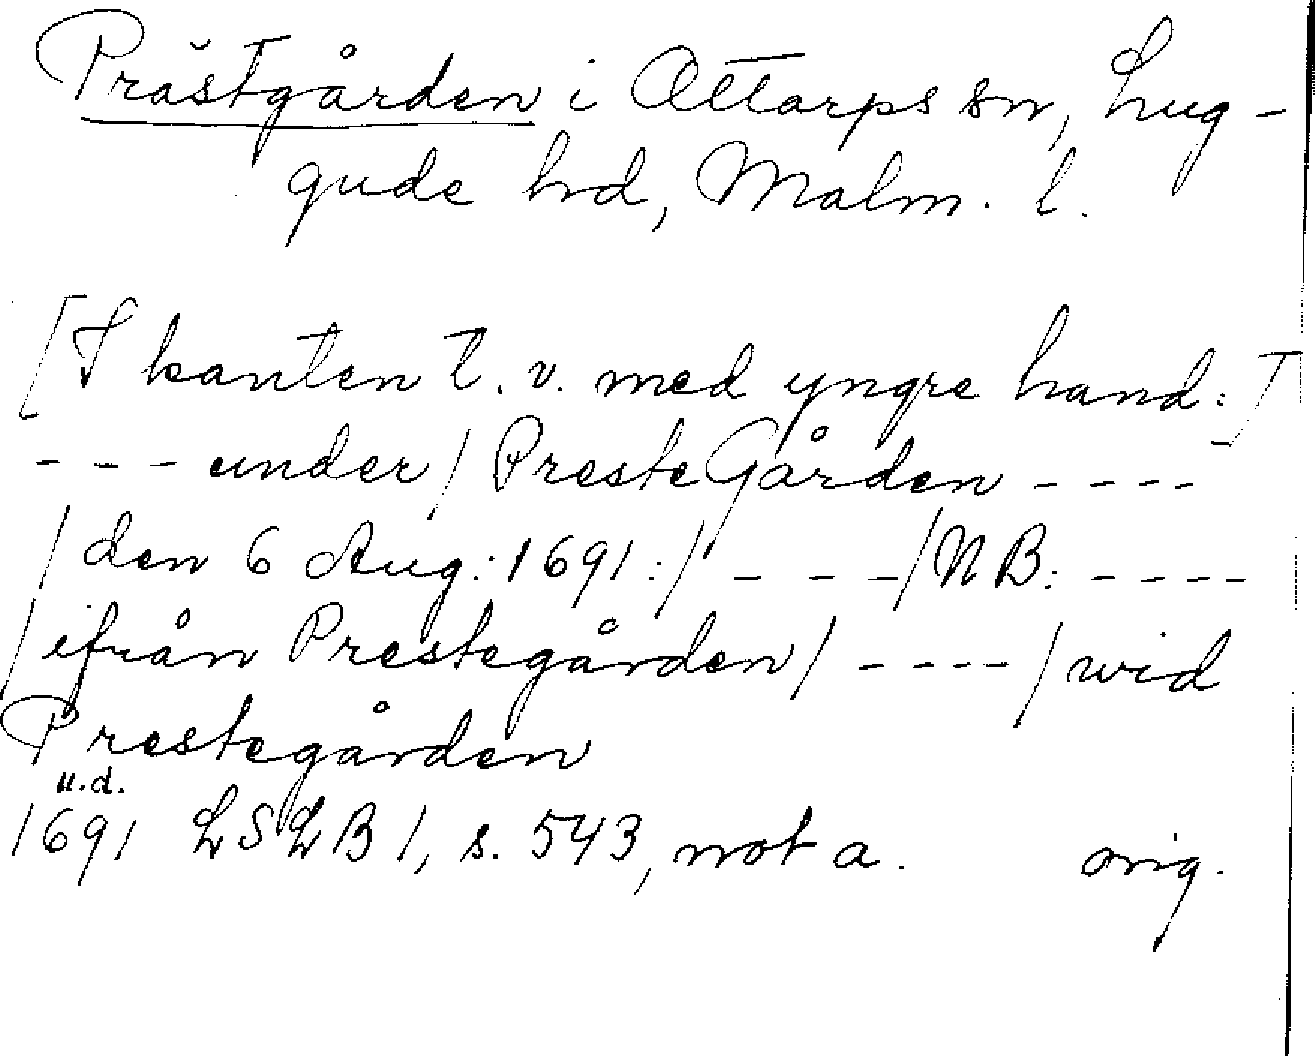 Prästgården i Ottarps sn, Lug-
gude hd, Malm. l.
[I kanten t. v. med yngre hand:]
--- under / PresteGården ----
/ den 6 Aug: 1691 :/ --- / NB: ----
/ ifrån Prestegården / ---- / wid
Prestegården
u.d.
1691 LSLB 1, s. 543, not a. orig.